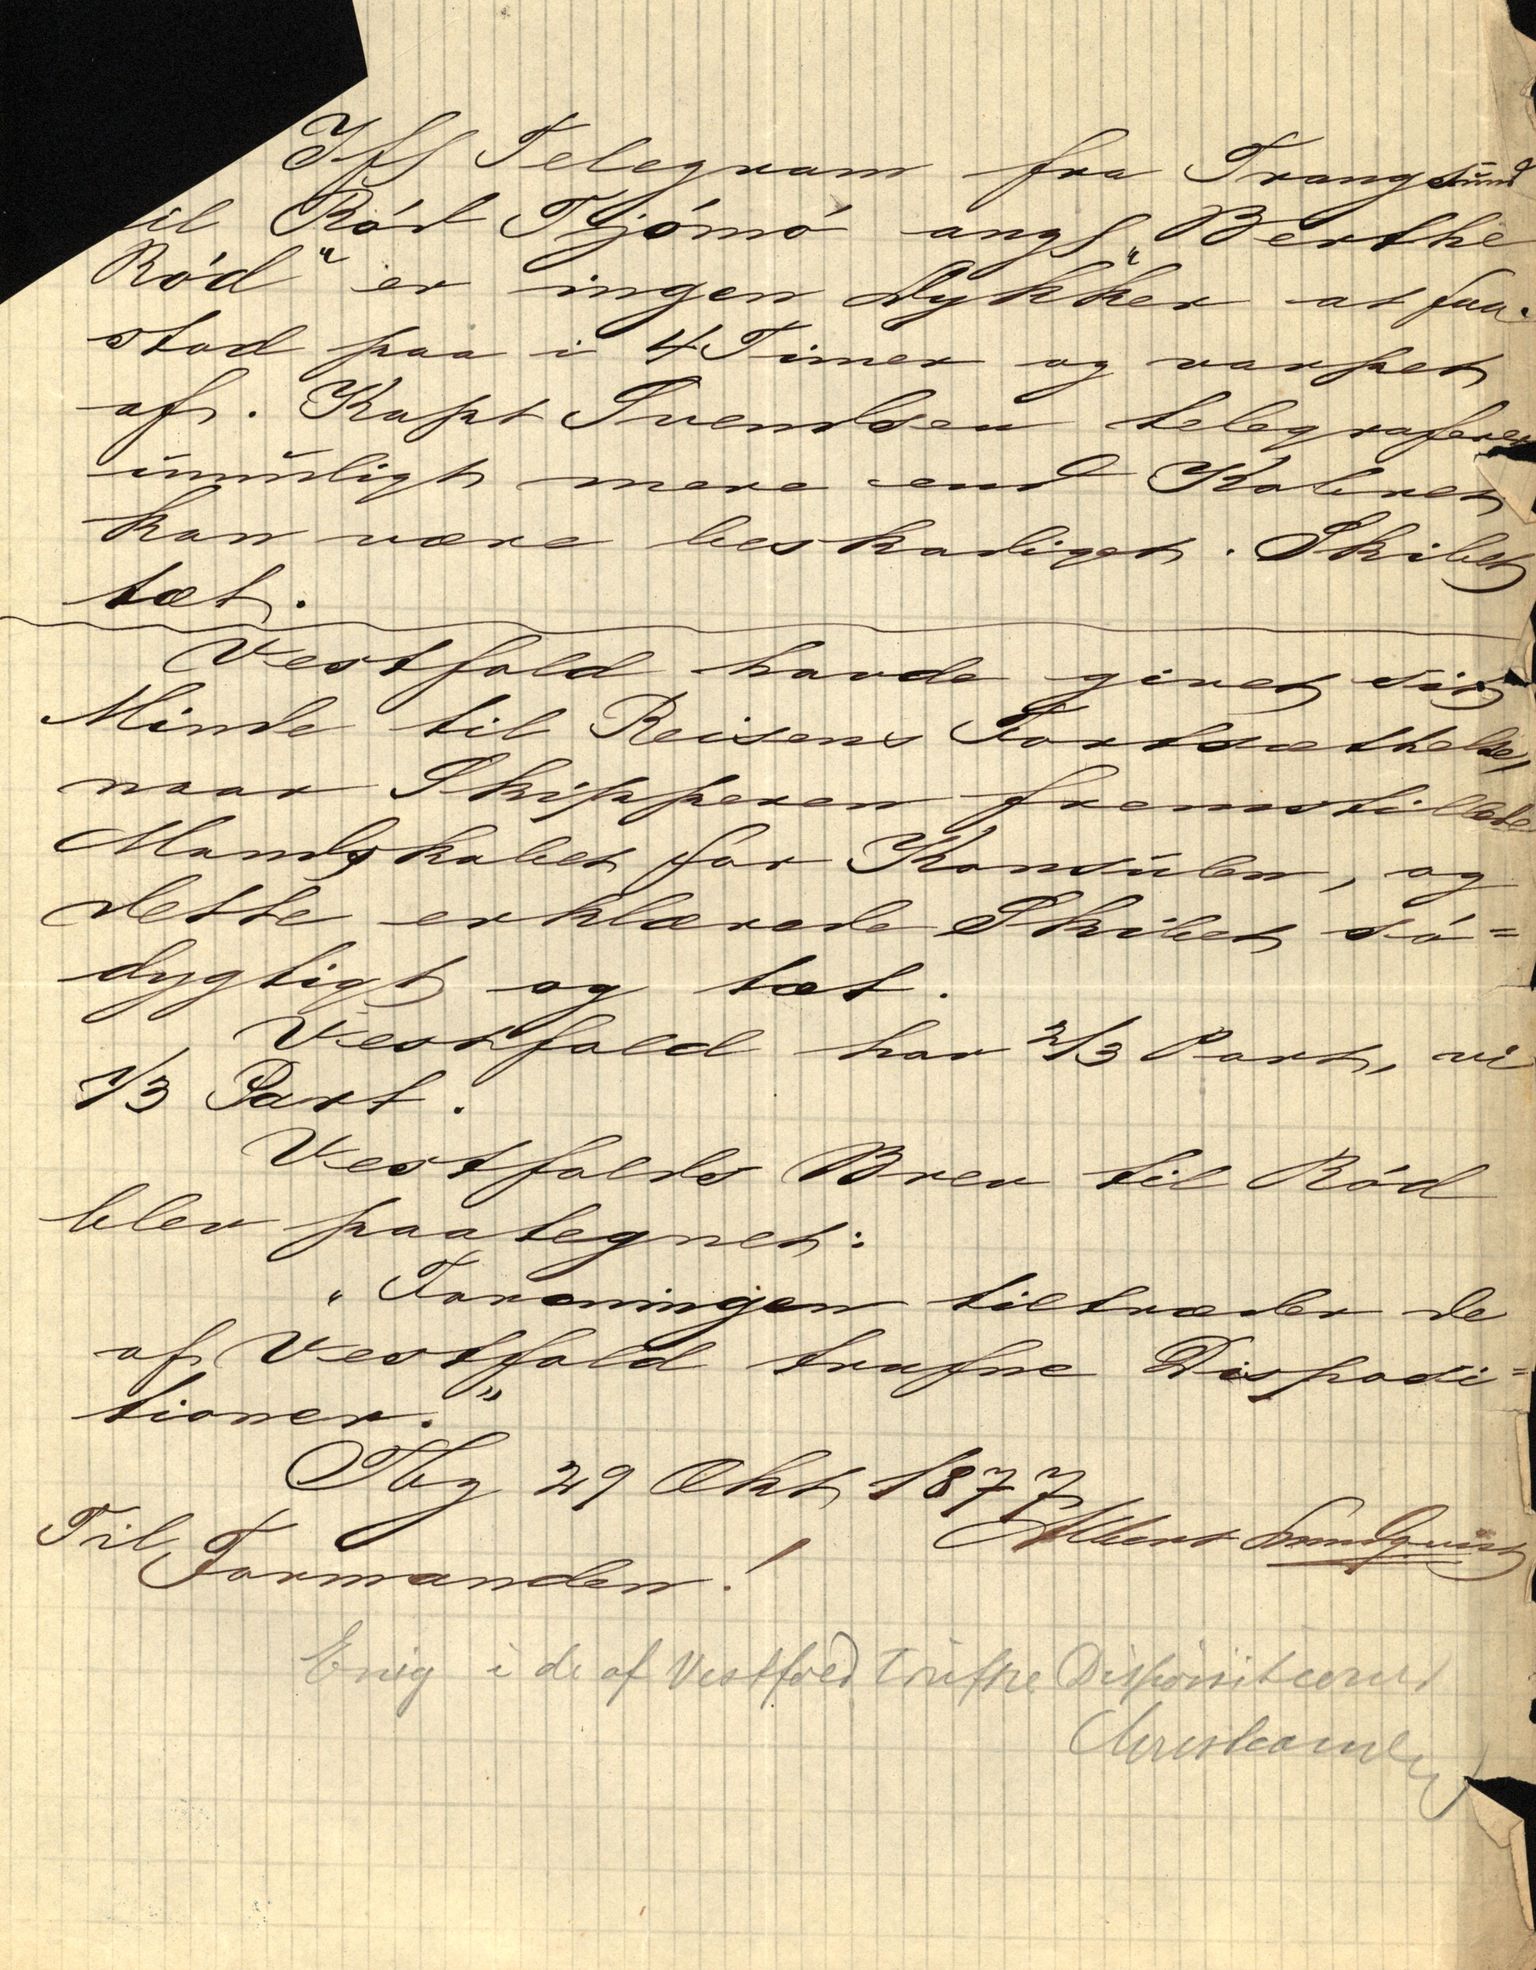 Ifl Telegram fra Trangsund
til Röd Tjömö angl „Berthe
Röd“ er ingen Dykker at faa.
stod paa i 4 Timer og varpet
af. Kapt Svendsen telegraferer
umuligt mere end Kobret
kan være beskadiget. Skibet
tæt.
Vestfold havde givet sit
Minde til Reisens Fortsættelse,
naar Skipperen fremstillede
Mandskabet for Konsulen, og
dette erklærede Skibet sö=
dygtigt og tæt.
Vestfold har 2/3 Part, vi
1/3 Part.
Vestfolds Brev til Röd
blev paategnet:
„Foreningen tiltræder de
af Vestfold trufne Disposi=
tioner.“
Tbg 29 Okt 1877
Albert
Til
Formanden!
Enig i de af Vestfold trufne Dispositioner